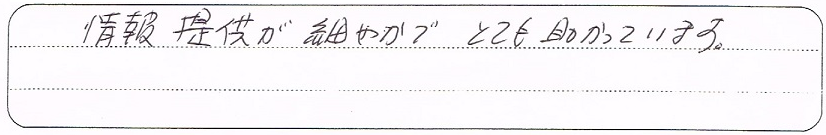 情報提供が細やかでとても助かっています。